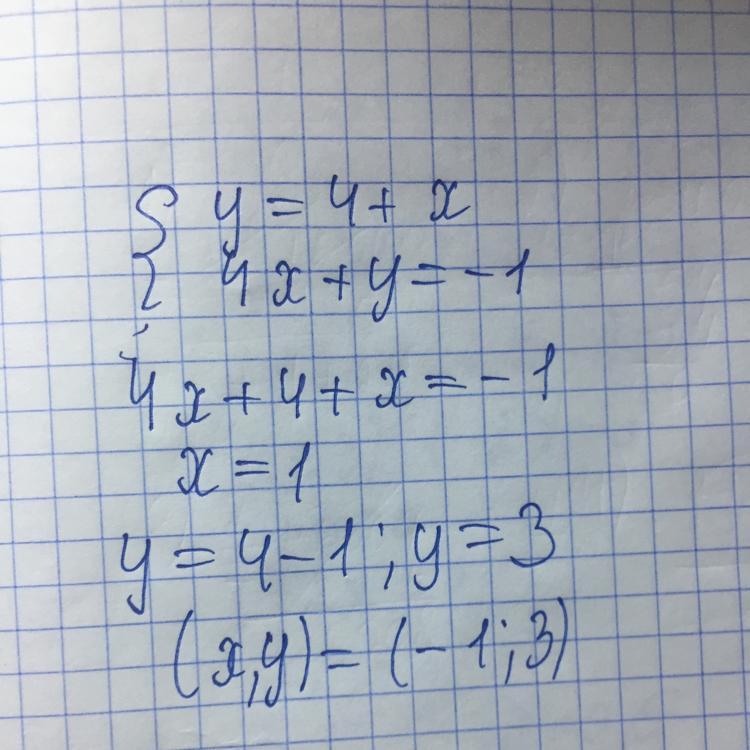 { y = 4 + x
4x + y = -1
4x + 4 + x = -1
x = 1
y = 4 - 1; y = 3
(x, y) = (-1; 3)